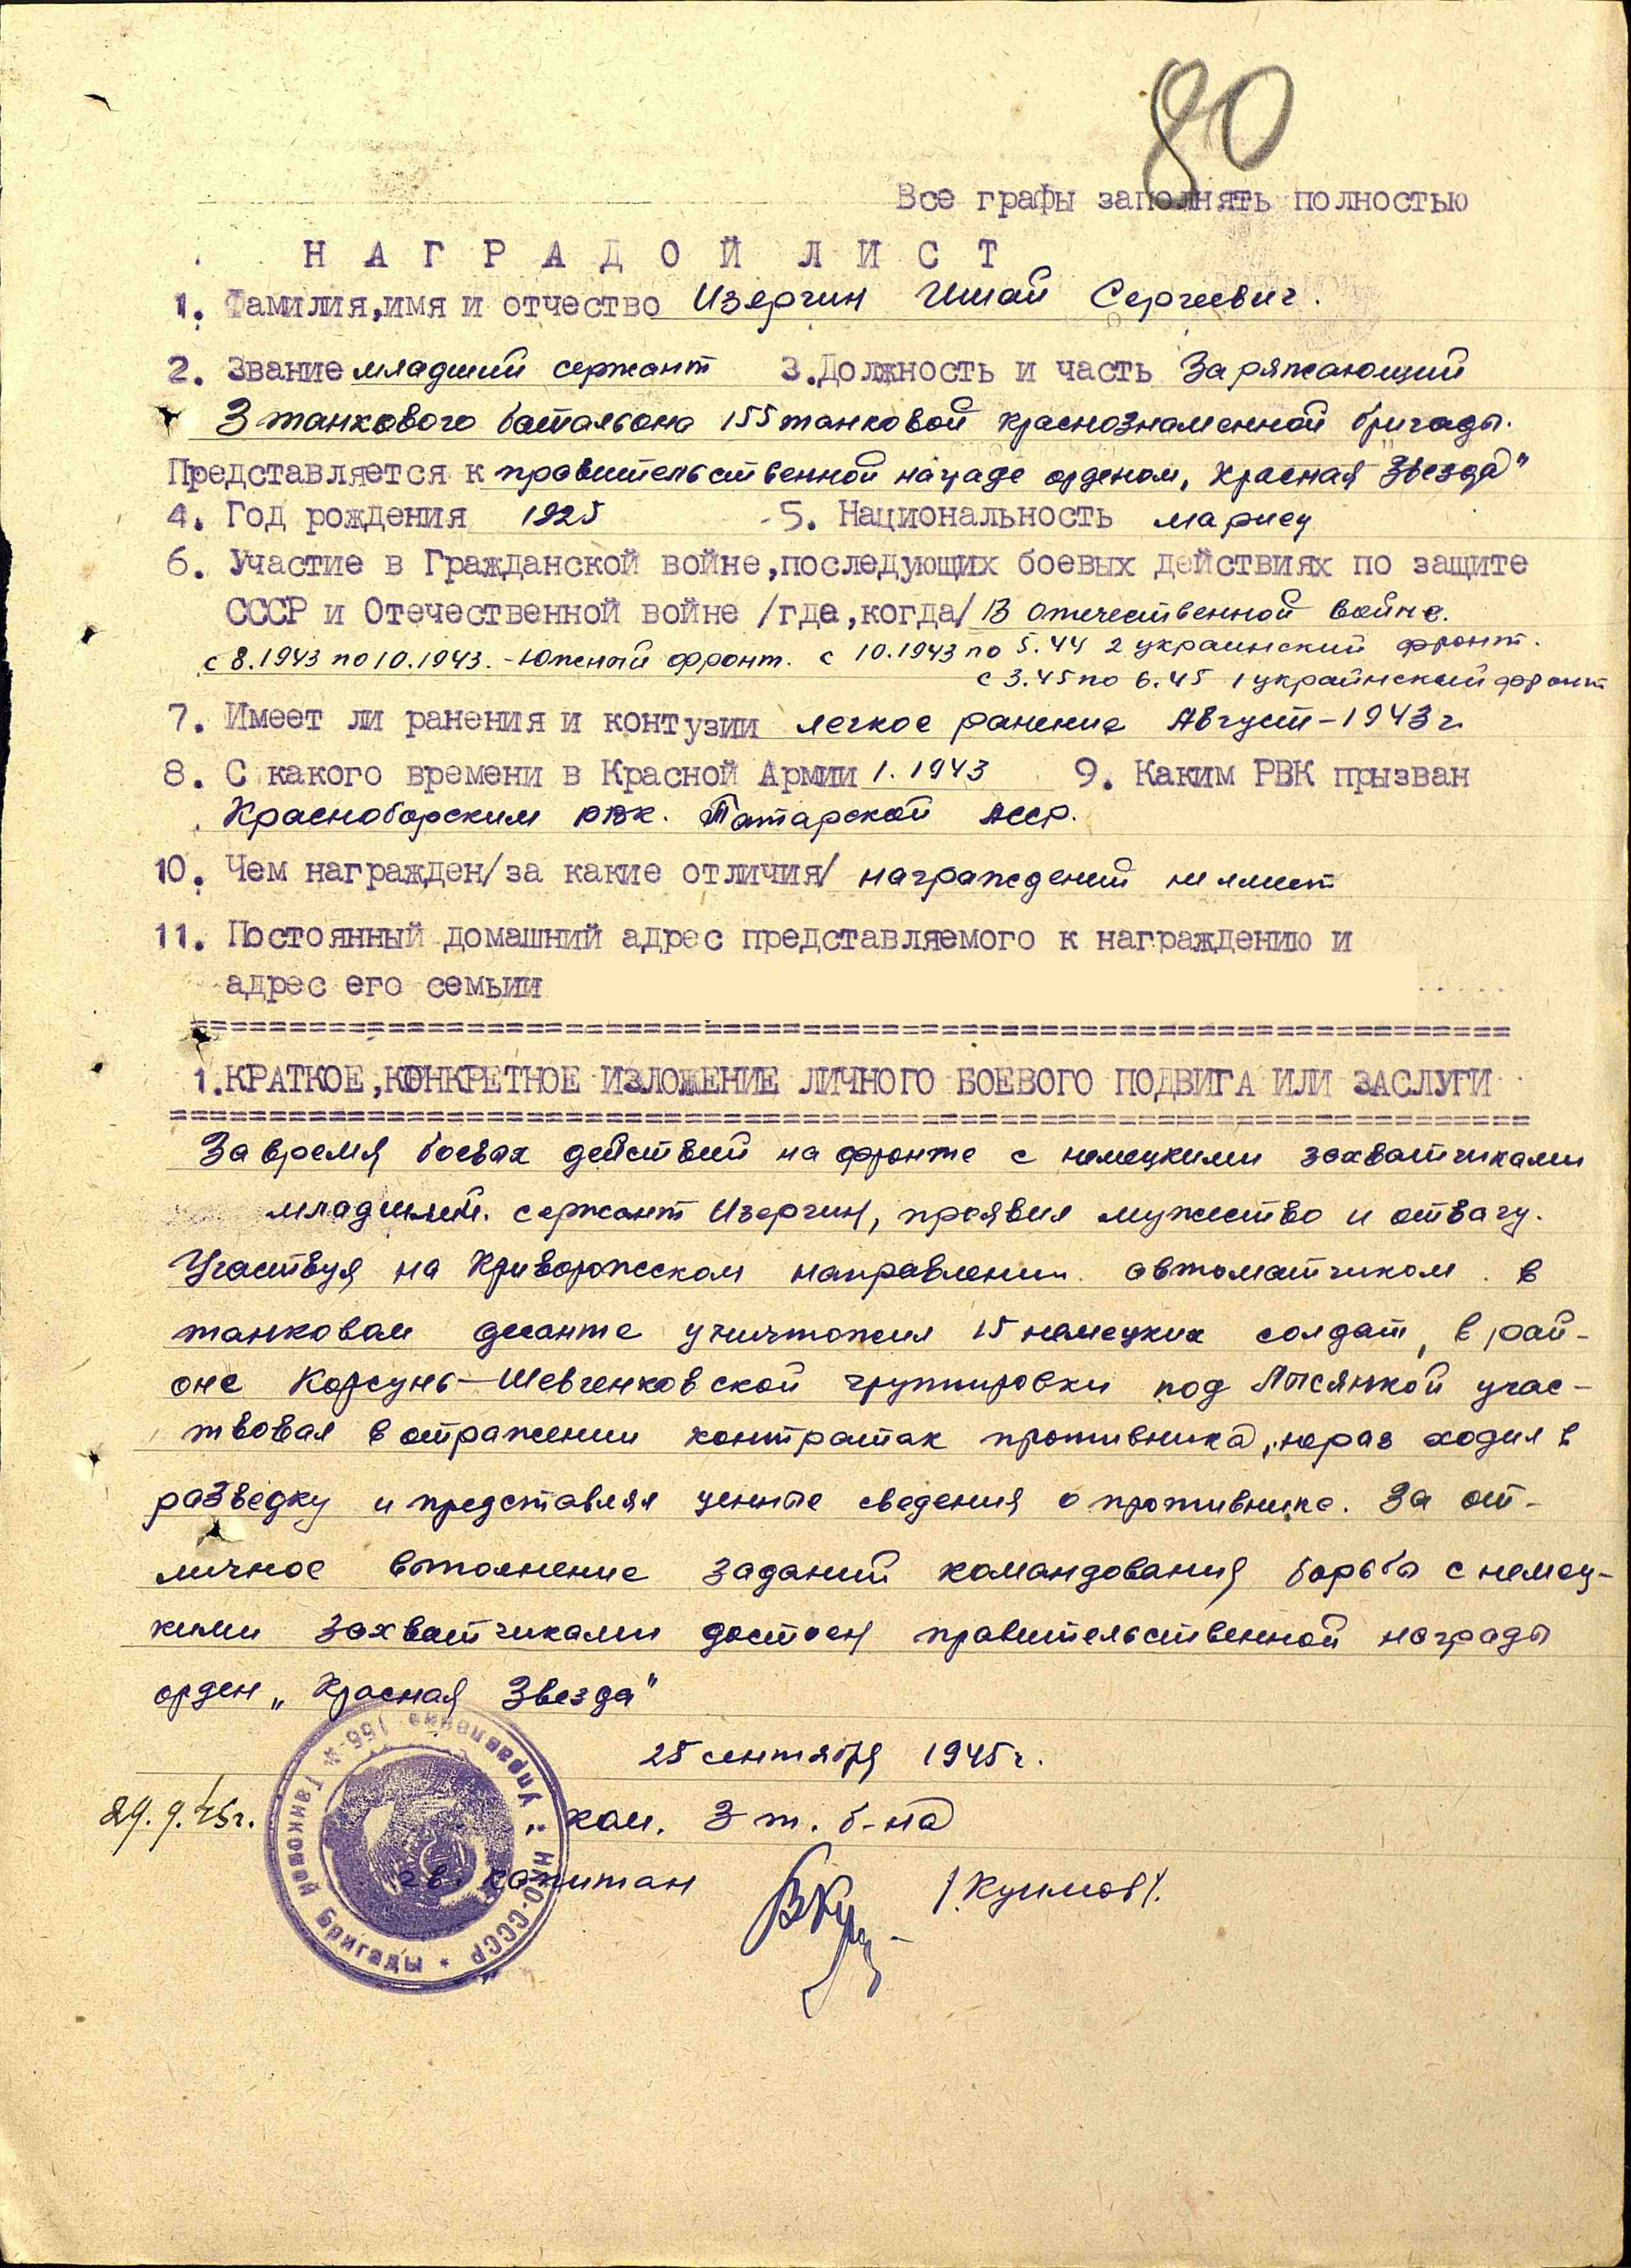 80
Все графы заполнять полностью
НАГРАДОЙ ЛИСТ
1. Фамилия,имя и отчество Изергин Ишай Сергеевич.
2. Звание младший сержант 3.Должность и часть Заряжающий
3 танкового батальона 155 танковой краснознаменной бригады.
Представляется к правительственной награде орденом „Красная Звезда"
4. Год рождения 1925 5. Национальность мариец
6. Участие в Гражданской войне,последующих боевых действиях по защите
СССР и Отечественной войне /где,когда/ В отечественной войне.
с 8.1943 по 10.1943. - Южный фронт. с 10.1943 по 5.44 2 украинский фронт.
с 3.45 по 6.45 1 украинский фронт
7. Имеет ли ранения и контузии легкое ранение Август-1943 г.
8. С какого времени в Красной Армии 1.1943 9. Каким РВК призван
Красноборским РВК. Татарской АССР.
10. Чем награжден/за какие отличия/ награждений не имеет
11. Постоянный домашний адрес представляемого к награждению и
адрес его семьии
1.КРАТКОЕ,КОНКРЕТНОЕ ИЗЛОЖЕНИЕ ЛИЧНОГО БОЕВОГО ПОДВИГА ИЛИ ЗАСЛУГИ
За время боевых действий на фронте с немецкими захватчиками
младший. сержант Изергин, проявил мужество и отвагу.
Участвуя на Криворожском направлении автоматчиком в
танковом десанте уничтожил 15 немецких солдат, в рай-
оне Корсунь-Шевченковской группировки под Лысянкой учас-
твовал в отражении контратак противника, нераз ходил в
разведку и представлял ценные сведения о противнике. За от-
личное выполнение заданий командования борьбы с немец-
кими захватчиками достоен правительственной награды
орден „Красная Звезда"
25 сентября 1945 г.
29.9.45г. ком. 3 т. б-на
гв. капитан /Кушмов/.
НКО-СССР * Управление 155-й Танковой Бригады *